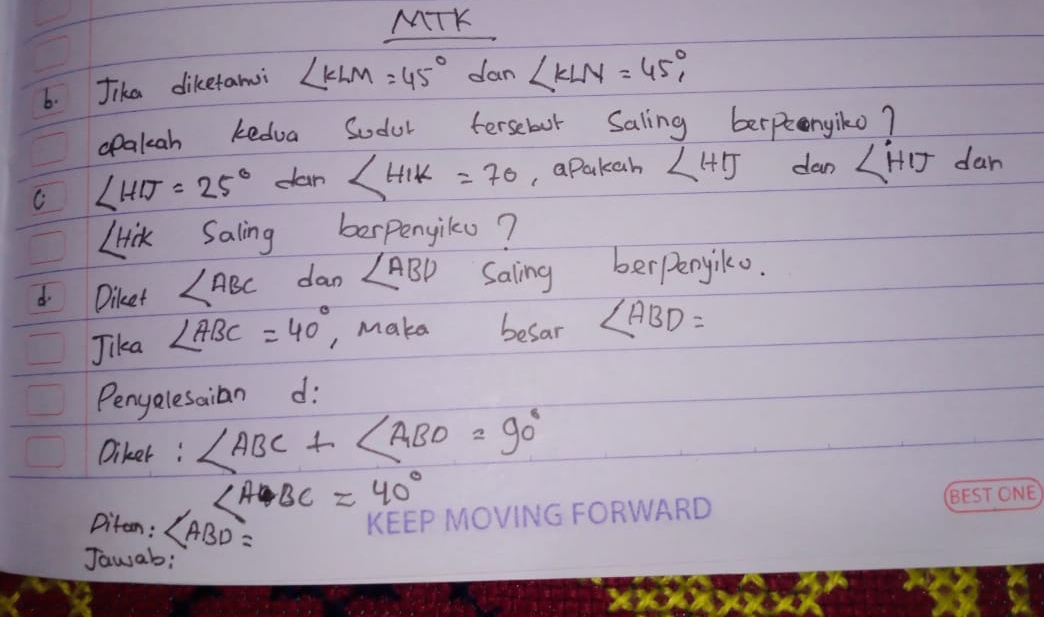 MTK
b. Jika diketahui ∠KLM = 45° dan ∠KLN = 45°,
apakah kedua sudut tersebut saling berpenyiko?
c ∠HIJ = 25° dan ∠HIK = 70, apakah ∠HIJ dan ∠HIJ dan
∠Hik saling berpenyiku?
d. Diket ∠ABC dan ∠ABD saling berpenyiku.
Jika ∠ABC = 40°, maka besar ∠ABD =
Penyelesaian d:
Diket : ∠ABC + ∠ABD = 90°
∠ABC = 40°
Ditan: ∠ABD =
Jawab:
KEEP MOVING FORWARD
BEST ONE